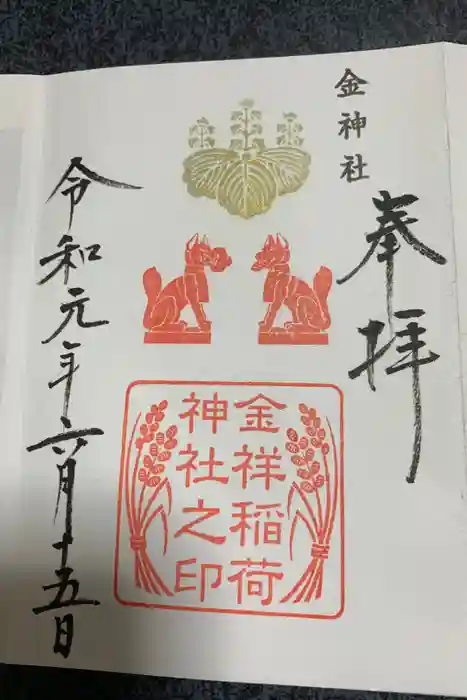 金神社
奉拝
金祥稲荷
神社之印
令和元年六月十五日